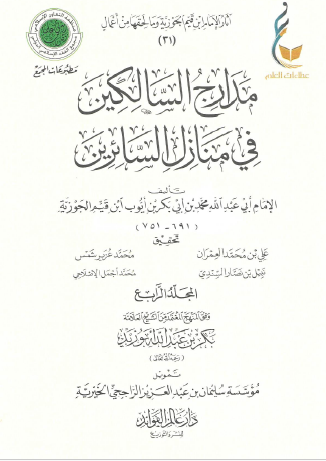 آثار الإمام ابن قيم الجوزية وما لحقها من أعمال
(٣١)
مطبوعات المجمع
مدارج السالكين
في منازل السائرين
تأليف
الإمام أبي عبد الله محمد بن أبي بكر بن أيوب ابن قيم الجوزية
(٦٩١ - ٧٥١)
تحقيق
علي بن محمد العمران محمد عزير شمس
نبيل بن نصار السندي محمد أجمل الإصلاحي
المجلد الرابع
وفق المنهج المعتمد من الشيخ العلامة
بكر بن عبد الله أبو زيد
(رحمه الله تعالى)
تمويل
مؤسسة سليمان بن عبد العزيز الراجحي الخيرية
دار عالم الفوائد
للنشر والتوزيع